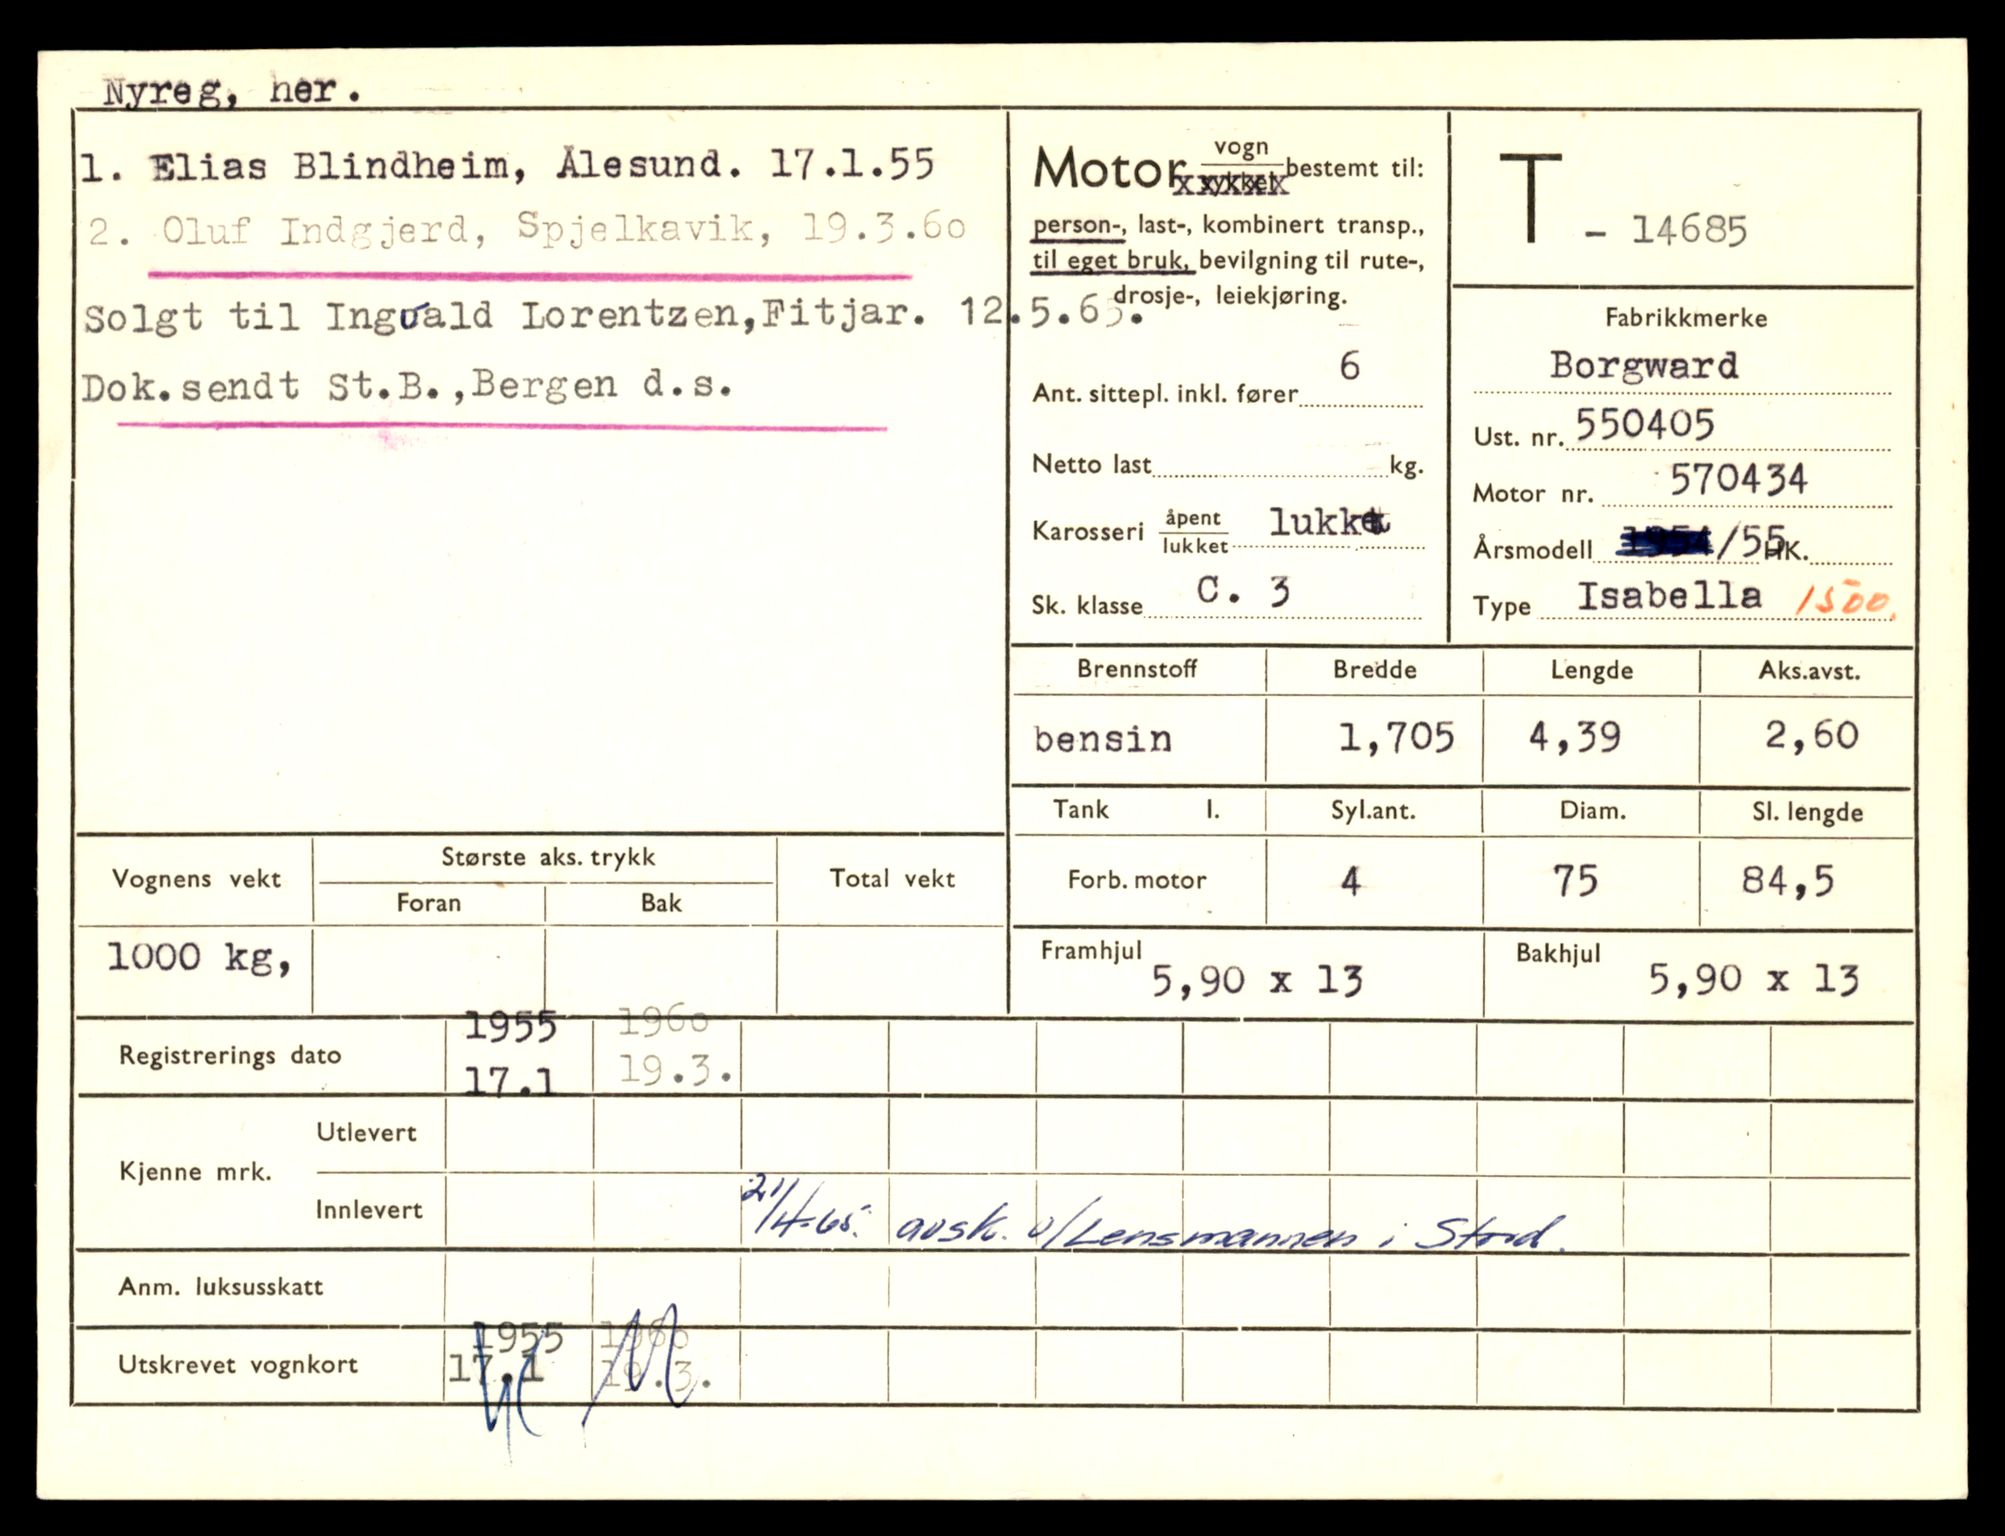 Nyreg, her.
1. Elias Blindheim, Ålesund. 17.1.55
2. Oluf Indgjerd, Spjelkavik, 19.3.60
Solgt til Ingvald Lorentzen, Fitjar. 12.5.65.
Dok.sendt St.B.,Bergen d.s.
Motor vogn bestemt til:
person-, last-, kombinert transp.,
til eget bruk, bevilgning til rute-,
drosje-, leiekjøring.
Ant. sittepl. inkl. fører 6
Netto last kg.
Karosseri åpent lukket lukket
Sk. klasse C. 3
T - 14685
Fabrikkmerke
Borgward
Ust. nr. 550405
Motor nr. 570434
Årsmodell 1954/55 HK.
Type Isabella 1500.
Brennstoff Bredde Lengde Aks.avst.
bensin 1,705 4,39 2,60
Tank l. Syl.ant. Diam. Sl. lengde
Forb. motor 4 75 84,5
Framhjul 5,90 x 13 Bakhjul 5,90 x 13
Vognens vekt Største aks. trykk Total vekt
Foran Bak
1000 kg,
1955 1960
Registrerings dato 17.1 19.3.
Kjenne mrk. Utlevert
Innlevert 21/4-65. avsk. v/Lensmannen i Stord.
Anm. luksusskatt
1955 1960
Utskrevet vognkort 17.1 19.3.